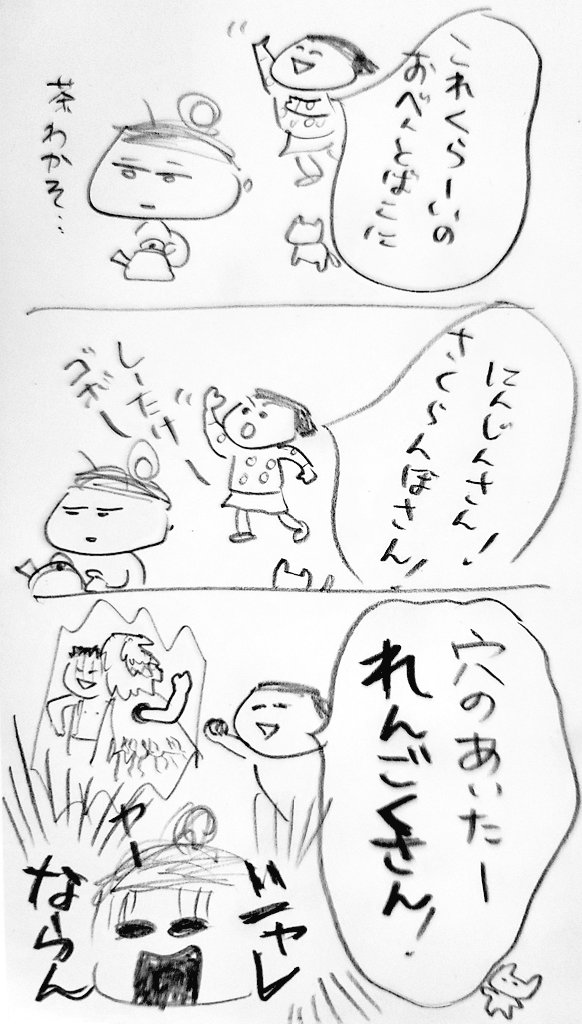 これくらーいの
おべんとばこに
茶わかそ…
にんじんさん!
さくらんぼさん!
しーたけー
ゴボー
穴のあいたー
れんごくさん!
シャレ
ならん
やー